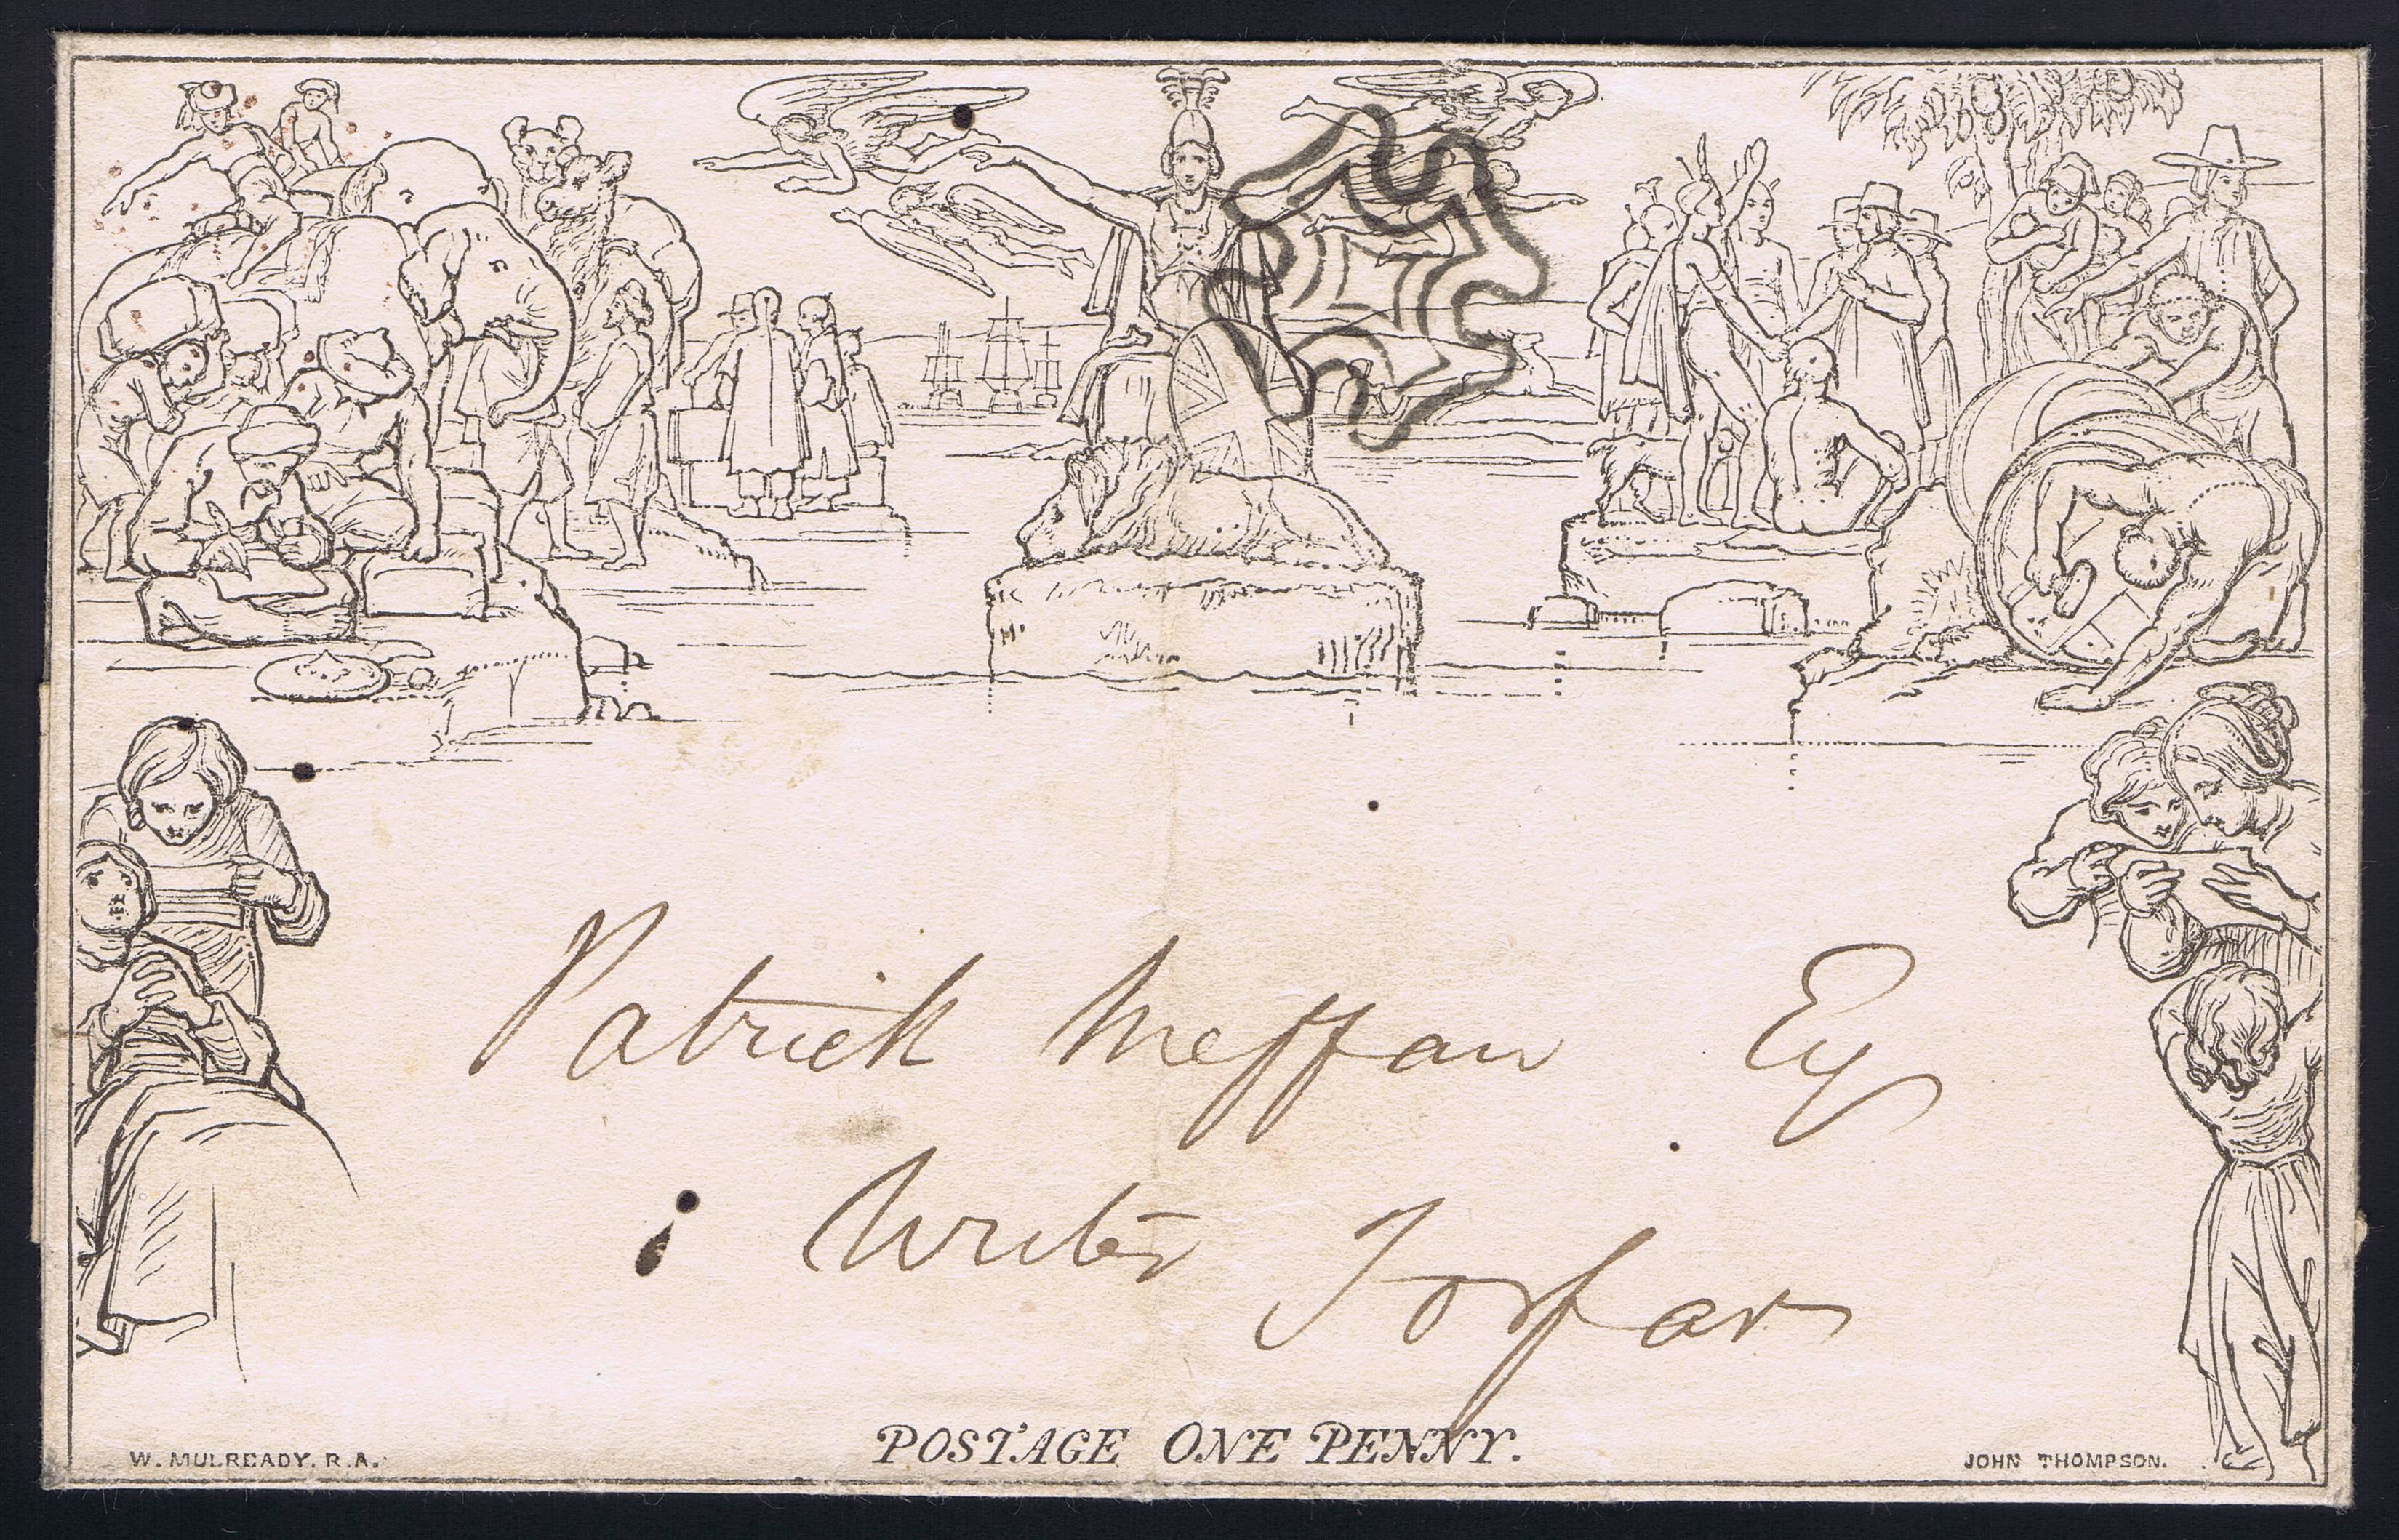 Patrick Meffan Esq
Writer Forfar
POSTAGE ONE PENNY.
W. MULREADY. R.A.
JOHN THOMPSON.